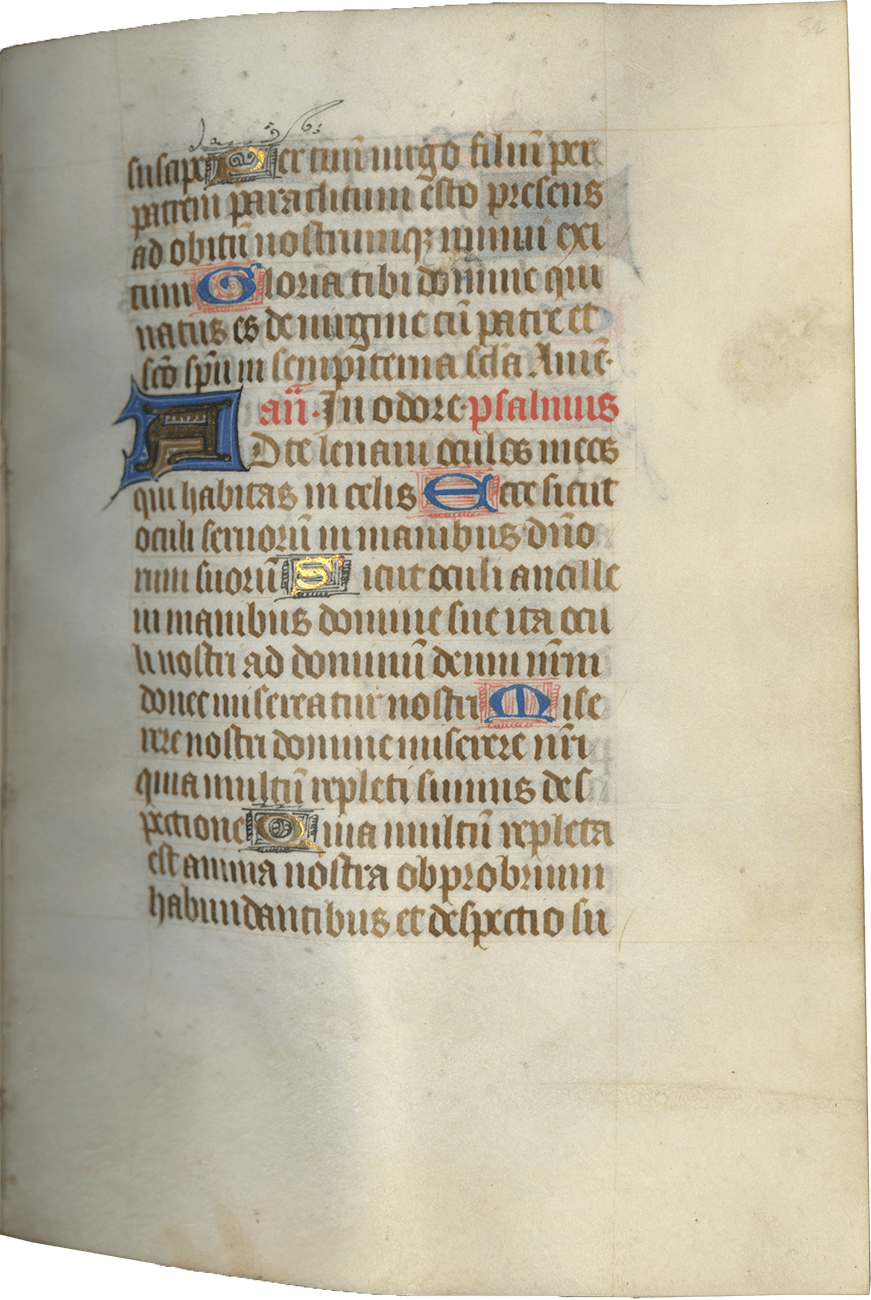 52
suscipe Per tuū uirgo filiū per
patrem paraclitum esto presens
ad obitū nostrumq; muniui exi
tum Gloria tibi domine qui
natus es de uirgine cū patre et
sc̄o sp̄u in sempiterna sc̄la Amē.
an̄. In odore. psalmus
AD te leuaui oculos meos
qui habitas in celis Ecce sicut
oculi seruorū in manibus dn̄o
rum suorū Sicut oculi ancille
in manibus domine sue ita ocu
li nostri ad dominū deum nr̄m
donec misereatur nostri Mise
rere nostri domine miserere nr̄i
quia multū repleti sumus des
pectione Quia multū repleta
est anima nostra obprobrium
habundantibus et despectio su